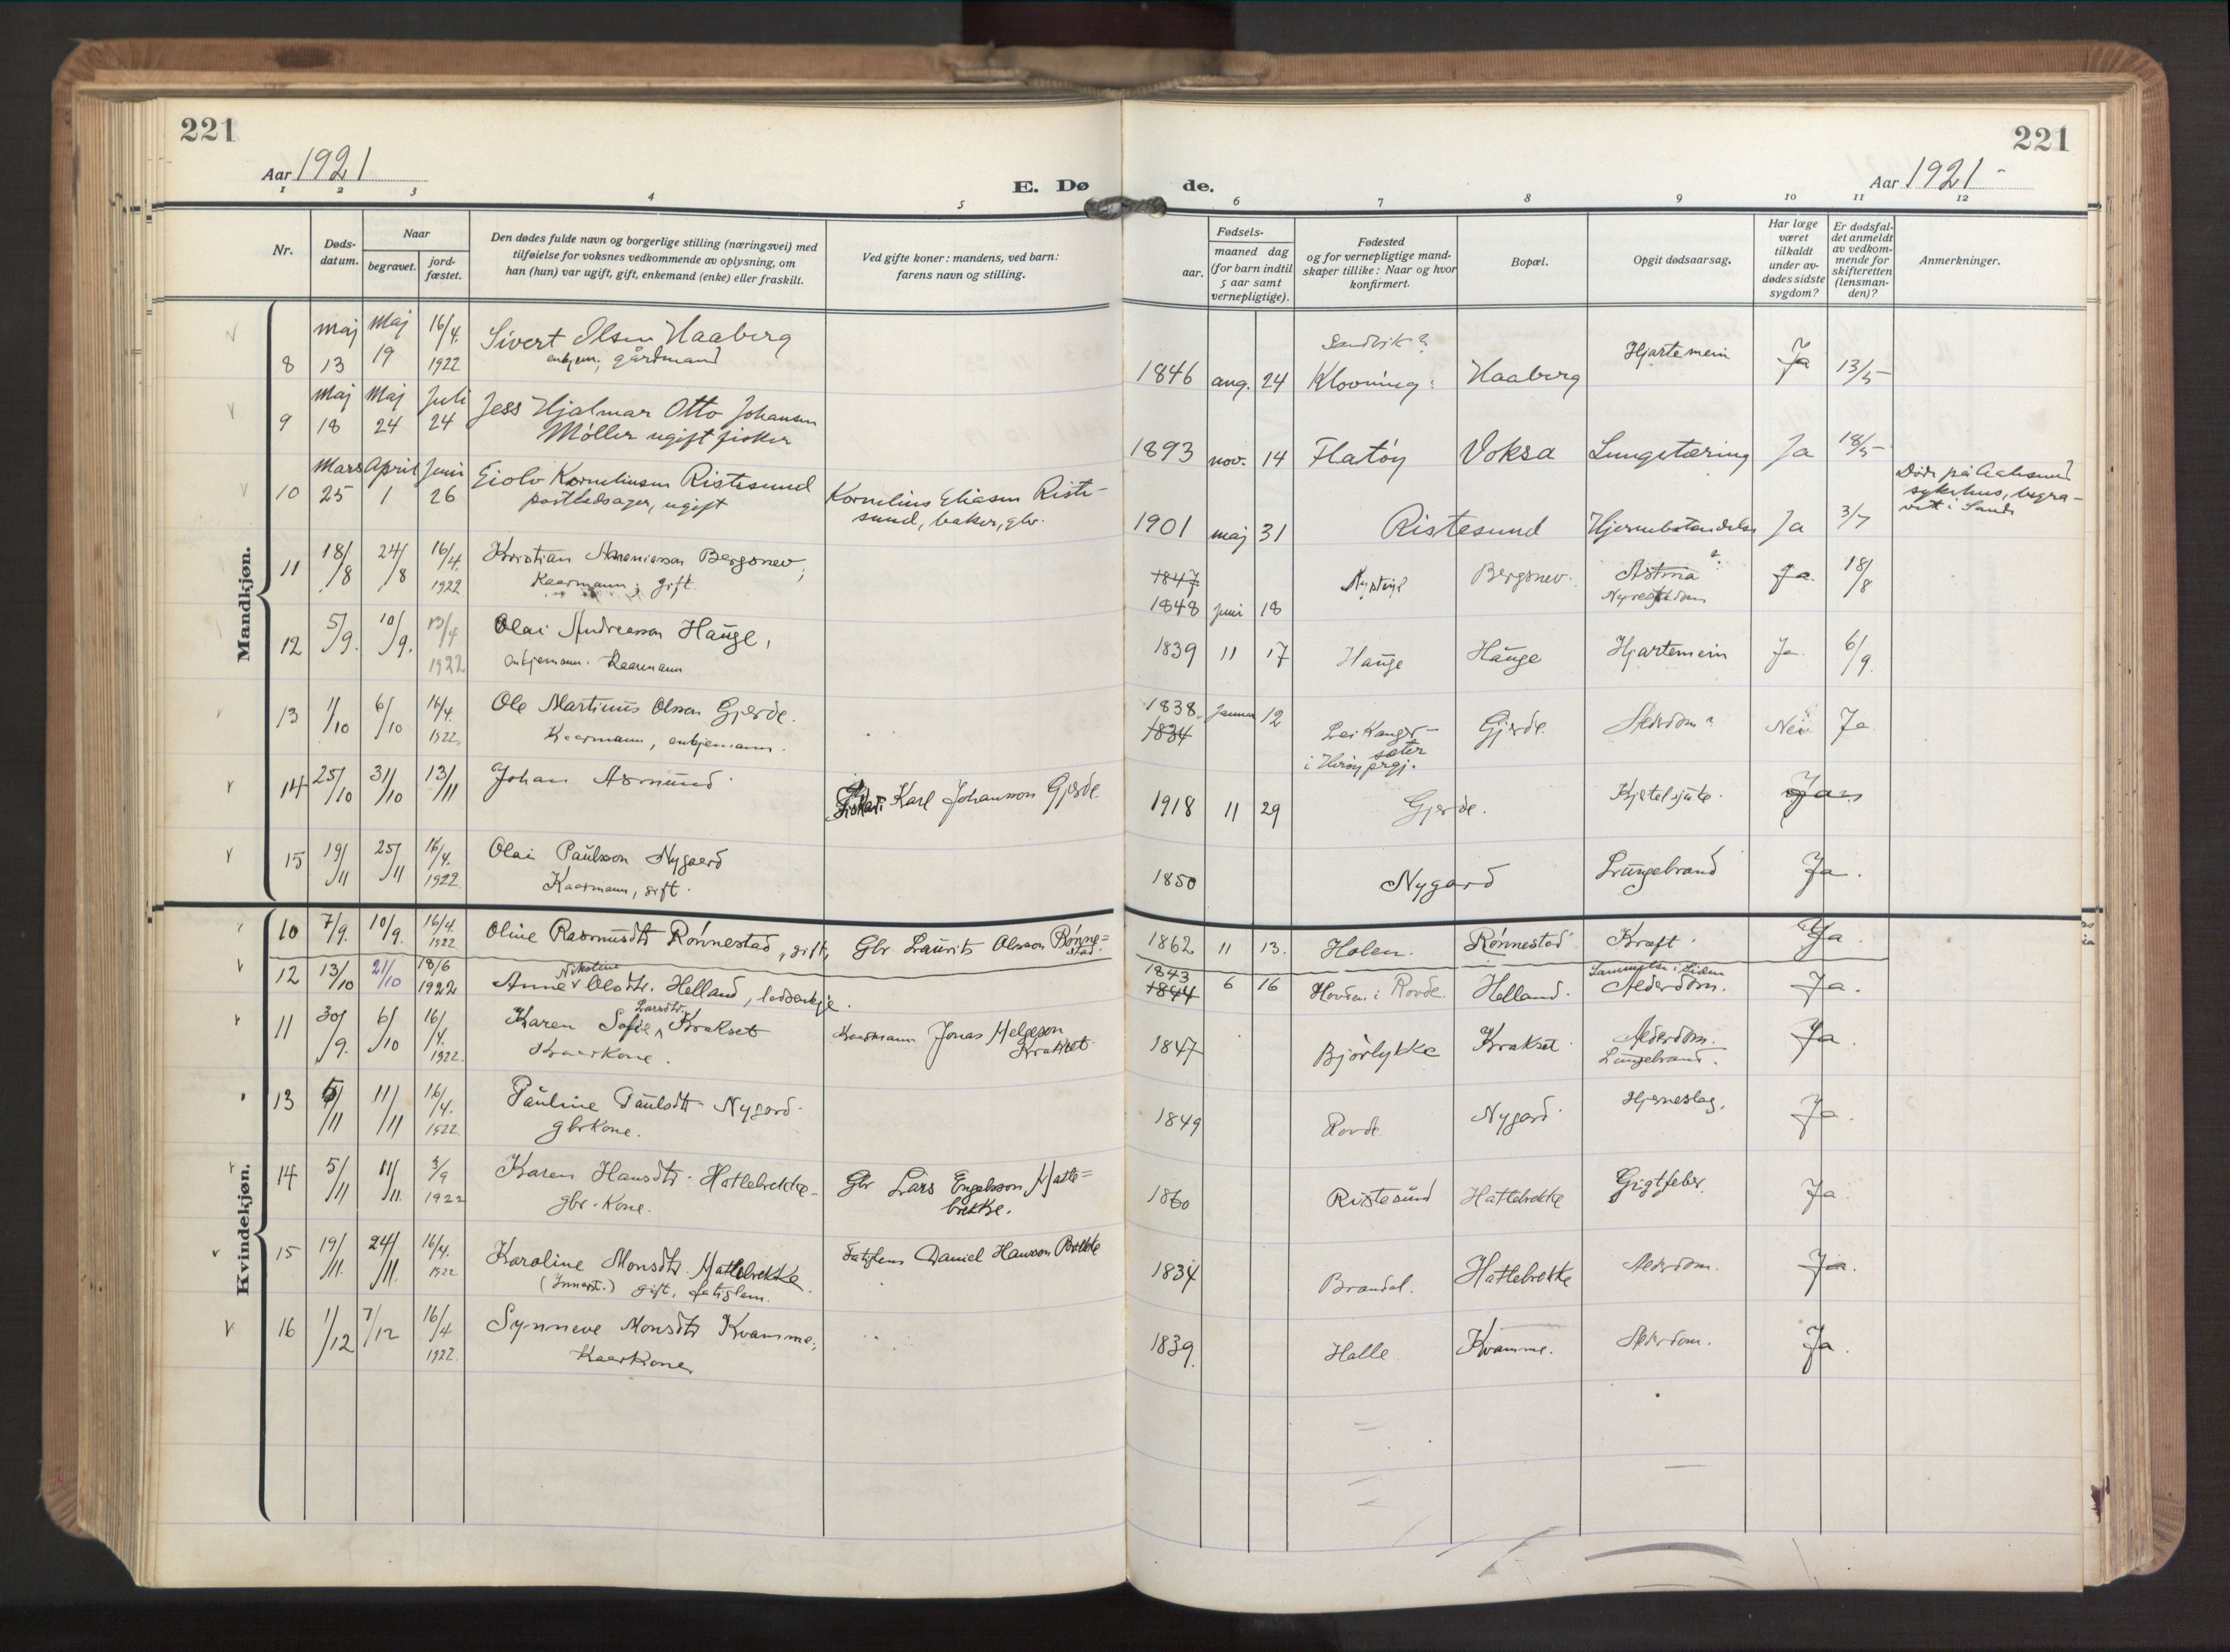 221
221
Aar 1921
E. Dø de.
Aar 1921 -
1 2 3 4 5 6 7 8 9 10 11 12
Nr.
Døds-
datum.
Naar
begravet.
jord-
fæstet.
Den dødes fulde navn og borgerlige stilling (næringsvei) med
tilføielse for voksnes vedkommende av oplysning, om
han (hun) var ugift, gift, enkemand (enke) eller fraskilt.
Ved gifte koner: mandens, ved barn:
farens navn og stilling.
Fødsels-
aar.
maaned dag
(for barn indtil
5 aar samt
vernepligtige).
Fødested
og for vernepligtige mand-
skaper tillike: Naar og hvor
konfirmert.
Bopæl.
Opgit dødsaarsag.
Har læge
været
tilkaldt
under av-
dødes sidste
sygdom?
Er dødsfal-
det anmeldt
av vedkom-
mende for
skifteretten
(lensman-
den)?
Anmerkninger.
Mandkjøn.
maj Maj 16/4. Sivert Olsen Haaberg Sandvik?
8 13 19 1922 enkjem., gårdmand 1846 aug. 24 Klovning: Haaberg Hjartemein Ja 13/5
Maj Maj Juli Jess Hjalmar Otto Johansen
9 18 24 24 Möller ugift fisker 1893 nov. 14 Flatöy Voksa Lungetæring Ja 18/5
Mars April Juni Eiolv Korneliussen Ristesund
10 25 1 26 postledsager, ugift Kornelius Eliasen Riste-
sund, baker, gbr. 1901 maj 31 Ristesund Ja 3/7
Døde på Aalesund
sykehus, begra-
vet i Sande
11 18/8 24/8 16/4. Kristian Ananiassen Bergsnev,
1922 Kaarmann; gift. 1847 Bergsnev. Astma? Ja. 18/8
1848 juni 18
12 5/9. 10/9. 13/4 Olai Andreasson Hauge,
1922 enkjemann. Kaarmann 1839 11 17 Hauge Hauge Hjartemein Ja. 6/9.
13 1/10 6/10 16/4. Ole Martinus Olsson Gjerde.
1922. Kaarmann, enkjemann. 1838. Januar 12 Leikanger-
1834 sæter
i Herøy prgj. Gjerde. Alderdom? Nei Ja
14 25/10 31/10 13/11 Johan Asmund Karl Johansson Gjerde. 1918 11 29 Gjerde. Ja
15 19/11 25/11 16/4. Olai Paulsson Nygaard
1922 Kaarmann, gift. 1850 Nygard Lungebrand Ja.
Kvindekjøn.
10 7/9. 10/9. 16/4. 1922 Oline Rasmusdtr Rönnestad, gift, Gbr Laurits Olsson Rønne=
stad. 1862 11 13. Holen. Rönnestad Kraft. Ja.
12 13/10 21/10 18/6 1922 Anne Nikoline Olsdtr. Helland, . 1843
1844 6 16 Hovden i Rovde Helland. Alderdom. Ja.
11 30/9. 6/10 16/4. 1922. Karen Sofie Larsdtr. Krakset
Kaarkone. Kaarmann Jonas Helgeson
Krakset 1847 Bjørlykke Krakset Alderdom. Ja.
Lungebrand.
13 5/11 11/11 16/4. 1922. Pauline Paulsdtr Nygard.
gbrkone. 1849 Rovde Nygard Hjerneslag. Ja.
14 5/11 11/11. 3/9 1922 Karen Hansdtr. Hatlebrekke-
gbr. kone. Gbr Lars Engelsson Hatle=
brekke. 1860 Ristesund Hatlebrekke Gigtfeber. Ja
15 19/11. 24/11. 16/4. 1922 Karoline Monsdtr. Hatlebrekke.
gift, fatiglem. Fatiglem Daniel Hansson Brekke 1834 Brandal. Hatlebrekke Alderdom. Ja.
16 1/12 7/12 16/4 1922. Synneve Monsdtr Kvamme,
Kaarkone 1839. Halle Kvamme. Alderdom. Ja.